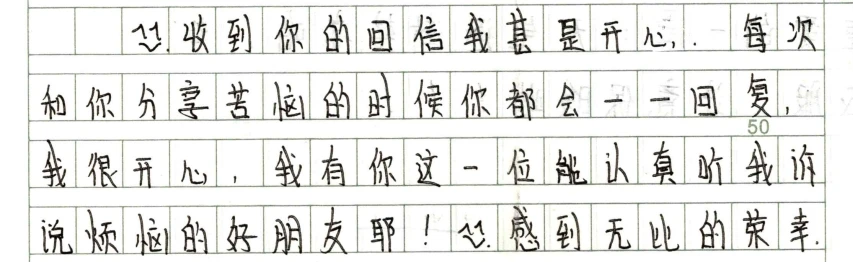 ^^收到你的回信我甚是开心，. 每次
和你分享苦恼的时候你都会一一回复，
50
我很开心，我有你这一位能认真听我诉
说烦恼的好朋友耶！^^感到无比的荣幸.